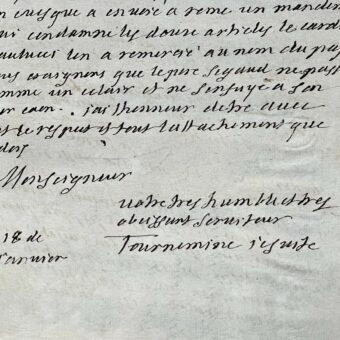 evesque a envoié a rome un mandem
ui condamne les douze articles le card
paulucci l'en a remercié au nom du pap
us craignons que le pere segaud ne pass
omme un eclair et ne s'enfuye a son
our caen. j'ai l'honneur d'etre avec
t le respect et tout l'attachement que
dois
Monseigneur
votre tres humble et tres
obeissant serviteur
18 de
Tournemine jesuite
janvier